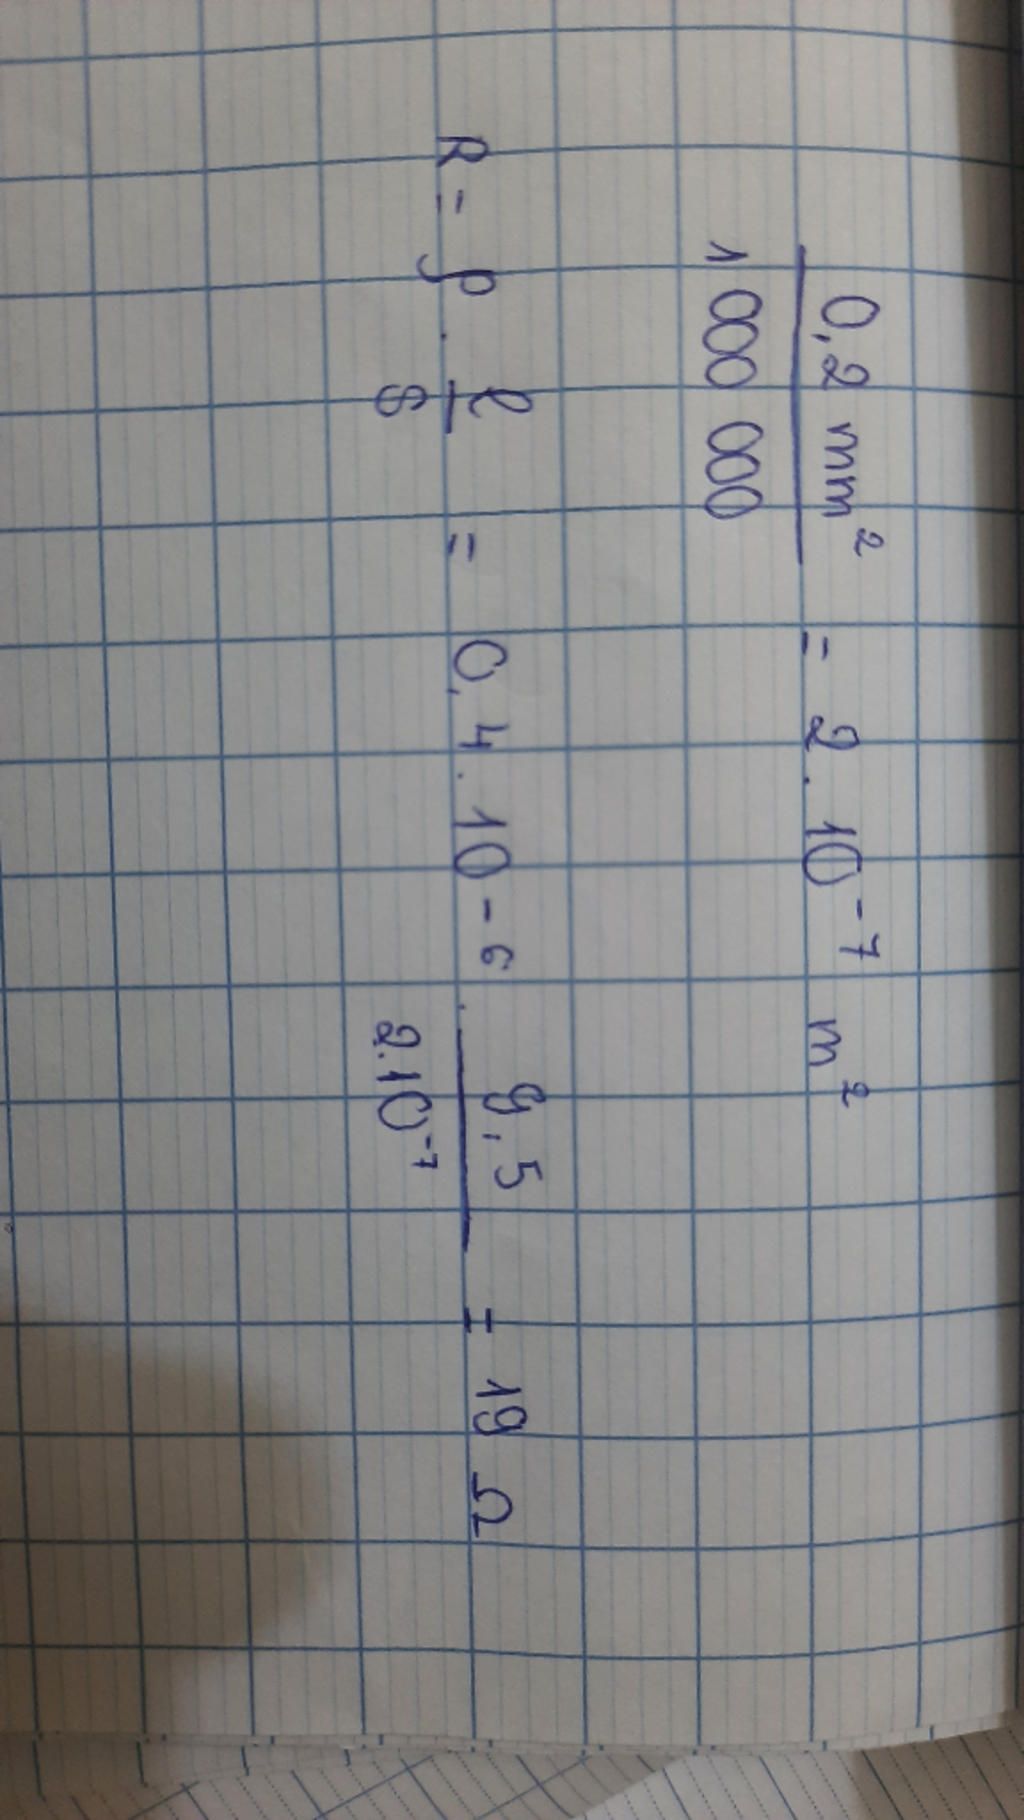 0,2 mm² / 1 000 000 = 2 . 10⁻⁷ m²
R = ρ . l / S = 0,4 . 10⁻⁶ . 9,5 / 2.10⁻⁷ = 19 Ω